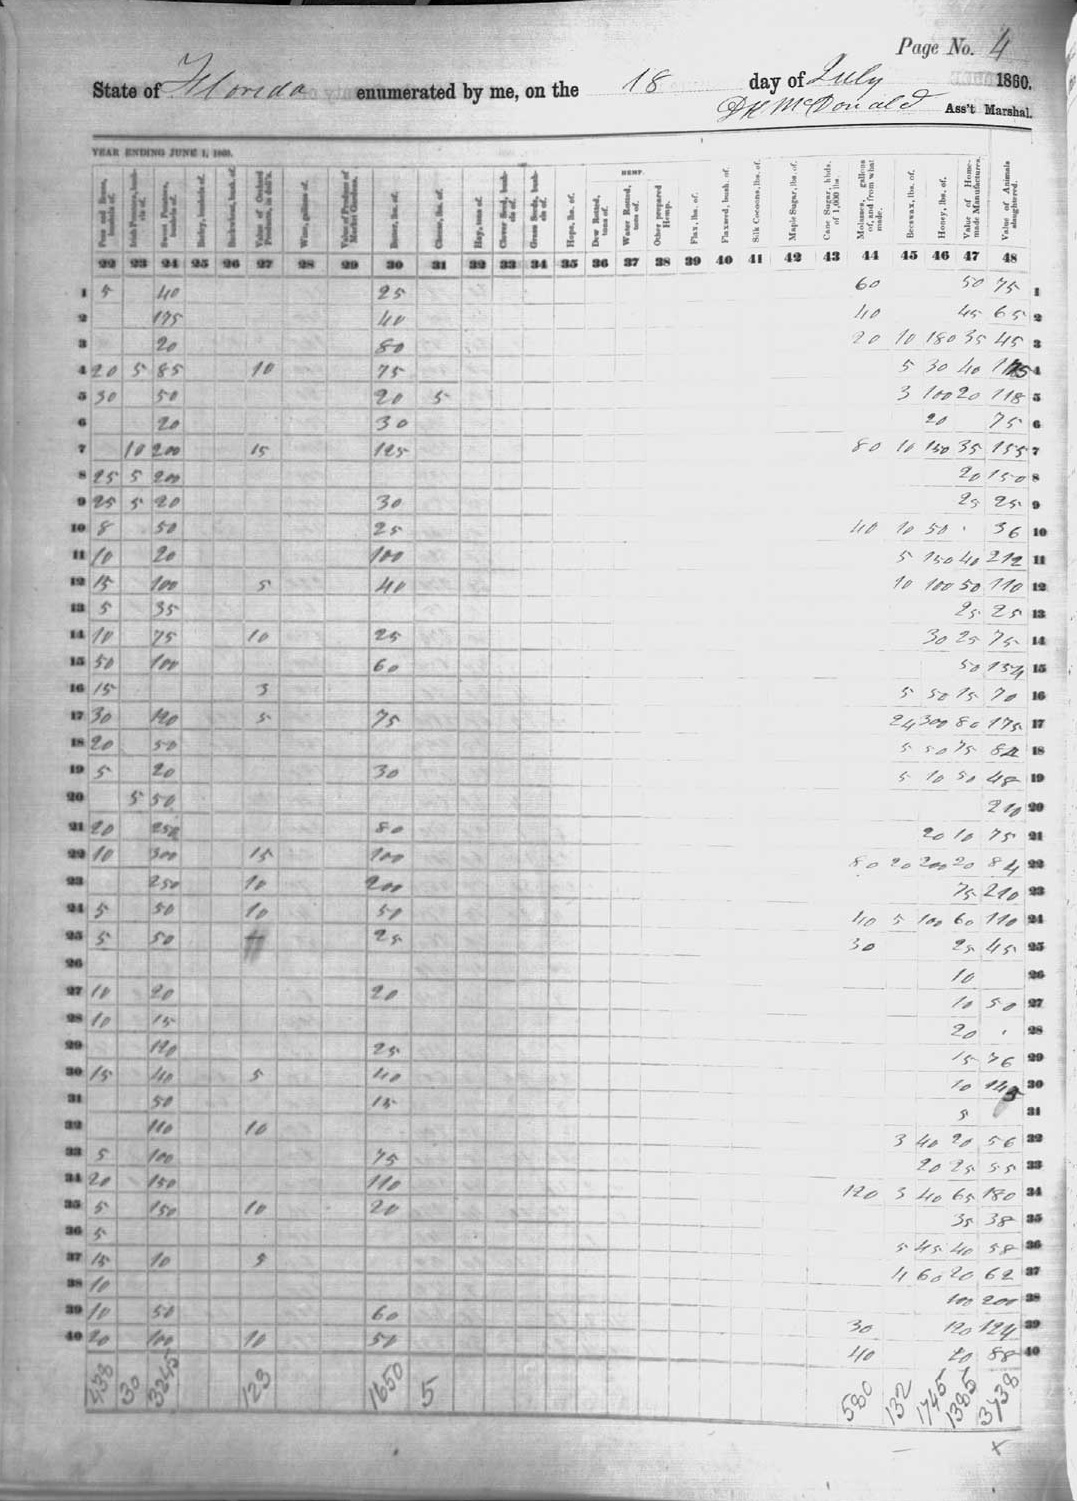 Page No. 4
State of Florida enumerated by me, on the 18 day of July 1860.
McDonald Ass't Marshal.
YEAR ENDING JUNE 1, 1860.
HEMP.
Peas and Beans, bushels of. Irish Potatoes, bushels of. Sweet Potatoes, bushels of. Barley, bushels of. Buckwheat, bush. of. Value of Orchard Products, in doll's. Wine, gallons of. Value of Produce of Market Gardens. Butter, lbs. of. Cheese, lbs. of. Hay, tons of. Clover Seed, bushels of. Grass Seeds, bushels of. Hops, lbs. of. Dew Rotted, tons of. Water Rotted, tons of. Other prepared Hemp. Flax, lbs. of. Flaxseed, bush. of. Silk Cocoons, lbs. of. Maple Sugar, lbs. of. Cane Sugar, hhds. of 1,000 lbs. Molasses, gallons of, and from what made. Beeswax, lbs. of. Honey, lbs. of. Value of Home-made Manufactures. Value of Animals slaughtered.
22 23 24 25 26 27 28 29 30 31 32 33 34 35 36 37 38 39 40 41 42 43 44 45 46 47 48
1 5 40 25 60 50 75 1
2 175 40 40 45 65 2
3 20 80 20 10 180 35 45 3
4 20 5 85 10 75 5 30 40 4
5 30 50 20 5 3 100 20 118 5
6 20 30 20 75 6
7 10 200 15 125 80 10 150 35 155 7
8 25 5 200 20 150 8
9 25 5 20 30 25 25 9
10 8 50 25 40 10 50 36 10
11 10 20 100 5 150 40 212 11
12 15 100 5 40 10 100 50 110 12
13 5 35 25 25 13
14 10 75 10 25 30 25 75 14
15 50 100 60 50 154 15
16 15 3 5 50 15 70 16
17 30 120 5 75 24 300 80 175 17
18 20 50 5 50 75 18
19 5 20 30 5 10 50 48 19
20 5 50 210 20
21 20 250 80 20 10 75 21
22 10 300 15 100 80 20 200 20 84 22
23 250 10 200 75 210 23
24 5 50 10 50 40 5 100 60 110 24
25 5 50 25 30 25 45 25
26 10 26
27 10 20 20 10 50 27
28 10 15 20 28
29 120 25 15 76 29
30 15 40 5 40 10 30
31 50 15 5 31
32 110 10 3 40 20 56 32
33 5 100 75 20 25 55 33
34 20 150 110 120 3 40 65 180 34
35 5 150 10 20 35 38 35
36 5 5 45 40 58 36
37 15 10 5 4 60 20 62 37
38 10 100 200 38
39 10 50 60 30 120 124 39
40 20 100 10 50 40 20 88 40
438 30 3245 123 1650 5 580 132 1745 1385 3738
x